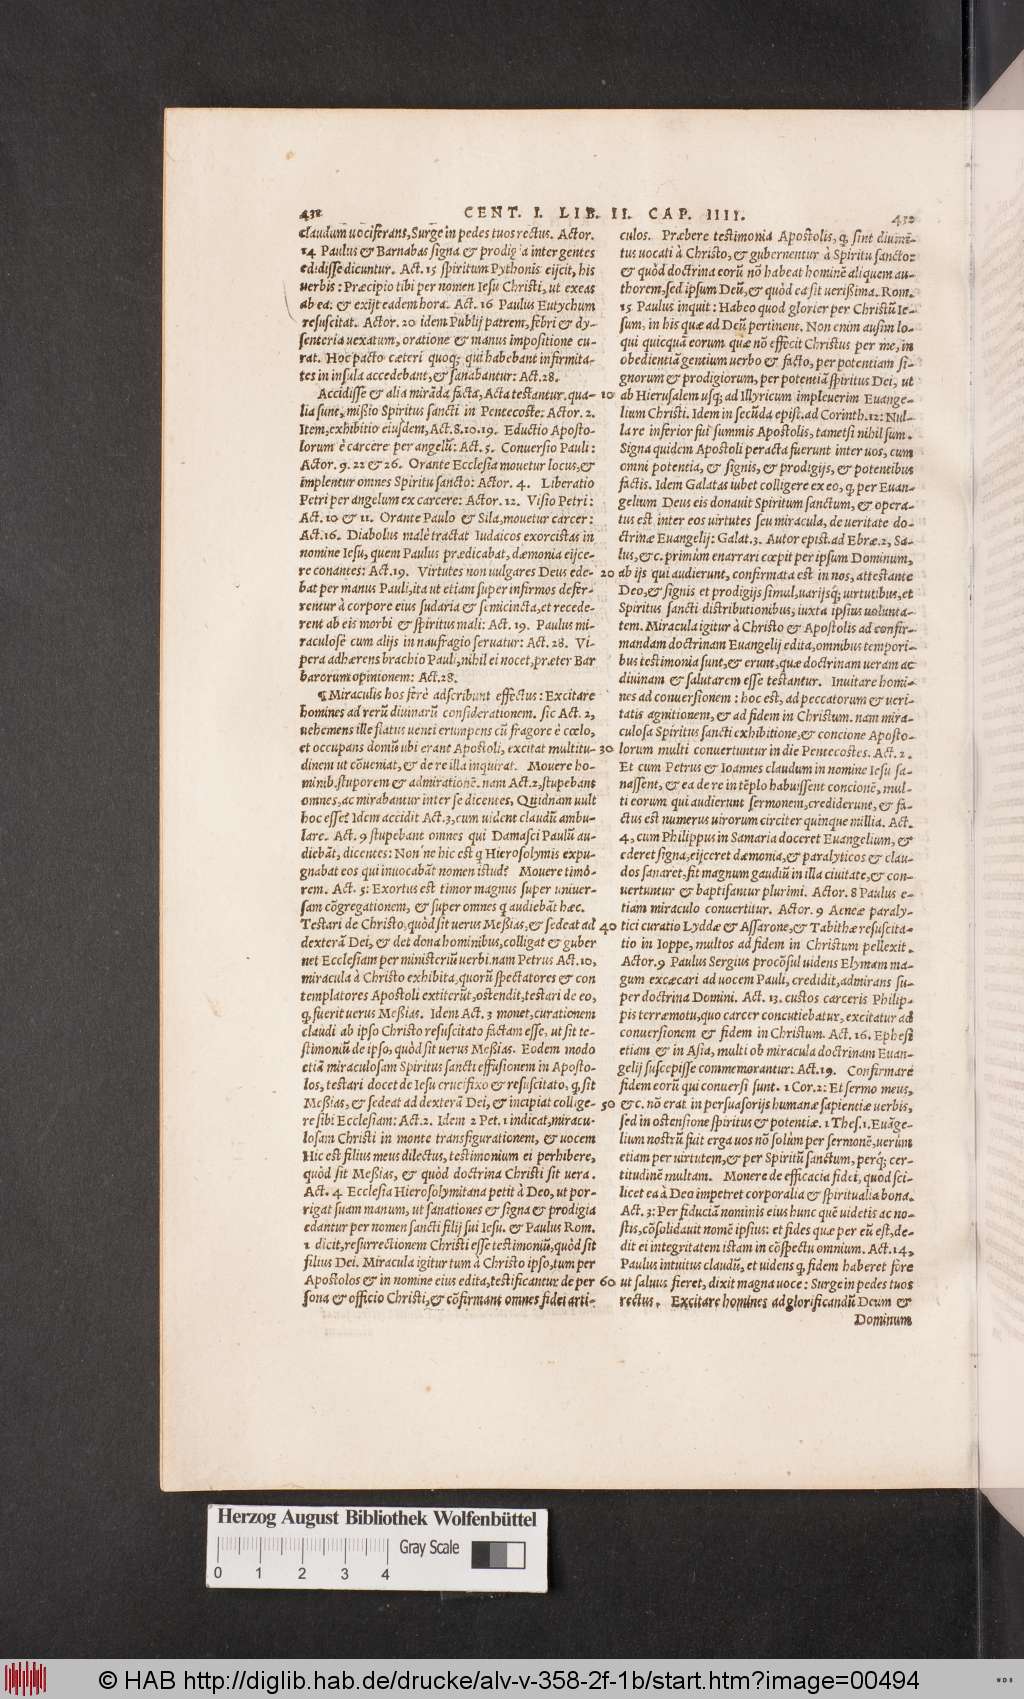 438 CENT. I. LIB. II. CAP. IIII.
claudum uociferans, Surge in pedes tuos rectus. Actor.
14 Paulus & Barnabas signa & prodigia inter gentes
edidisse dicuntur. Act. 15 spiritum Pythonis eijcit, his
uerbis: Præcipio tibi per nomen Iesu Christi, ut exeas
ab ea. & exijt eadem hora. Act. 16 Paulus Eutychum
resuscitat. Actor. 20 idem Publij patrem, febri & dy-
senteria uexatum, oratione & manus impositione cu-
rat. Hoc pacto cæteri quoq; qui habebant infirmita-
tes in insula accedebant, & sanabantur: Act. 28.
Accidisse & alia mirãda facta, Acta testantur. qua-
lia sunt, mißio Spiritus sancti in Pentecoste: Actor. 2.
Item, exhibitio eiusdem, Act. 8. 10. 19. Eductio Aposto-
lorum è carcere per angelũ: Act. 5. Conuersio Pauli:
Actor. 9. 22 & 26. Orante Ecclesia mouetur locus, &
implentur omnes Spiritu sancto: Actor. 4. Liberatio
Petri per angelum ex carcere: Actor. 12. Visio Petri:
Act. 10 & 11. Orante Paulo & Sila, mouetur carcer:
Act. 16. Diabolus malè tractat Iudaicos exorcistas in
nomine Iesu, quem Paulus prædicabat, dæmonia eijce-
re conantes: Act. 19. Virtutes non uulgares Deus ede-
bat per manus Pauli, ita ut etiam super infirmos defer-
rentur à corpore eius sudaria & semicincta, et recede-
rent ab eis morbi & spiritus mali: Act. 19. Paulus mi-
raculosè cum alijs in naufragio seruatur: Act. 28. Vi-
pera adhærens brachio Pauli, nihil ei nocet, præter Bar
barorum opinionem: Act. 28.
¶ Miraculis hos ferè adscribunt effectus: Excitare
homines ad rerũ diuinarũ considerationem. sic Act. 2,
uehemens ille flatus uenti erumpens cũ fragore è cœlo,
et occupans domũ ubi erant Apostoli, excitat multitu-
dinem ut cõueniat, & de re illa inquirat. Mouere ho-
minib. stuporem & admirationẽ. nam Act. 2, stupebant
omnes, ac mirabantur inter se dicentes, Quidnam uult
hoc esse? Idem accidit Act. 3, cum uident claudũ ambu-
lare. Act. 9 stupebant omnes qui Damasci Paulũ au-
diebãt, dicentes: Non'ne hic est q Hierosolymis expu-
gnabat eos qui inuocabãt nomen istud? Mouere timo-
rem. Act. 5: Exortus est timor magnus super uniuer-
sam cõgregationem, & super omnes q audiebãt hæc.
Testari de Christo, quòd sit uerus Meßias, & sedeat ad
dexterã Dei, & det dona hominibus, colligat & guber
net Ecclesiam per ministeriũ uerbi. nam Petrus Act. 10,
miracula à Christo exhibita, quorũ spectatores & con
templatores Apostoli extiterũt, ostendit, testari de eo,
q, fuerit uerus Meßias. Idem Act. 3 monet, curationem
claudi ab ipso Christo resuscitato factam esse, ut sit te-
stimoniũ de ipso, quòd sit uerus Meßias. Eodem modo
etiã miraculosam Spiritus sancti effusionem in Aposto-
los, testari docet de Iesu crucifixo & resuscitato, q, sit
Meßias, & sedeat ad dexterã Dei, & incipiat collige-
re sibi Ecclesiam: Act. 2. Idem 2 Pet. 1 indicat, miracu-
losam Christi in monte transfigurationem, & uocem
Hic est filius meus dilectus, testimonium ei perhibere,
quòd sit Meßias, & quòd doctrina Christi sit uera.
Act. 4 Ecclesia Hierosolymitana petit à Deo, ut por-
rigat suam manum, ut sanationes & signa & prodigia
edantur per nomen sancti filij sui Iesu. & Paulus Rom.
1 dicit, resurrectionem Christi esse testimoniũ, quòd sit
filius Dei. Miracula igitur tum à Christo ipso, tum per
Apostolos & in nomine eius edita, testificantur de per
sona & officio Christi, & cõfirmant omnes fidei arti-
10
20
30
40
50
60
culos. Præbere testimonia Apostolis, q, sint diuinì-
tus uocati à Christo, & gubernentur à Spiritu sancto:
& quòd doctrina eorũ nõ habeat hominẽ aliquem au-
thorem, sed ipsum Deũ, & quòd ea sit uerißima. Rom.
15 Paulus inquit: Habeo quod glorier per Christũ Ie-
sum, in his quæ ad Deũ pertinent. Non enim ausim lo-
qui quicquã eorum quæ nõ effecit Christus per me, in
obedientiã gentium uerbo & facto, per potentiam si-
gnorum & prodigiorum, per potentiã spiritus Dei, ut
ab Hierusalem usq; ad Illyricum impleuerim Euange-
lium Christi. Idem in secũda epist. ad Corinth. 12: Nul-
la re inferior fui summis Apostolis, tametsi nihil sum.
Signa quidem Apostoli peracta fuerunt inter uos, cum
omni potentia, & signis, & prodigijs, & potentibus
factis. Idem Galatas iubet colligere ex eo, q, per Euan-
gelium Deus eis donauit Spiritum sanctum, & opera-
tus est inter eos uirtutes seu miracula, de ueritate do-
ctrinæ Euangelij: Galat. 3. Autor epist. ad Ebræ. 2, Sa-
lus, &c. primùm enarrari cœpit per ipsum Dominum,
ab ijs qui audierunt, confirmata est in nos, attestante
Deo, & signis et prodigijs simul, uarijsq; uirtutibus, et
Spiritus sancti distributionibus, iuxta ipsius uolunta-
tem. Miracula igitur à Christo & Apostolis ad confir-
mandam doctrinam Euangelij edita, omnibus tempori-
bus testimonia sunt, & erunt, quæ doctrinam ueram ac
diuinam & salutarem esse testantur. Inuitare homi-
nes ad conuersionem: hoc est, ad peccatorum & ueri-
tatis agnitionem, & ad fidem in Christum. nam mira-
culosa Spiritus sancti exhibitione, & concione Aposto-
lorum multi conuertuntur in die Pentecostes. Act. 2.
Et cum Petrus & Ioannes claudum in nomine Iesu sa-
nassent, & ea de re in tẽplo habuissent concionẽ, mul-
ti eorum qui audierunt sermonem, crediderunt, & fa-
ctus est numerus uirorum circiter quinque millia. Act.
4, cum Philippus in Samaria doceret Euangelium, &
ederet signa, eijceret dæmonia, & paralyticos & clau-
dos sanaret, fit magnum gaudiũ in illa ciuitate, & con-
uertuntur & baptisantur plurimi. Actor. 8 Paulus e-
tiam miraculo conuertitur. Actor. 9 Aeneæ paraly-
tici curatio Lyddæ & Assarone, & Tabithæ resuscita-
tio in Ioppe, multos ad fidem in Christum pellexit.
Actor. 9 Paulus Sergius procõsul uidens Elymam ma-
gum excæcari ad uocem Pauli, credidit, admirans su-
per doctrina Domini. Act. 13. custos carceris Philip-
pis terræmotu, quo carcer concutiebatur, excitatur ad
conuersionem & fidem in Christum. Act. 16. Ephesi
etiam & in Asia, multi ob miracula doctrinam Euan-
gelij suscepisse commemorantur: Act. 19. Confirmare
fidem eorũ qui conuersi sunt. 1 Cor. 2: Et sermo meus,
&c. nõ erat in persuasorijs humanæ sapientiæ uerbis,
sed in ostensione spiritus & potentiæ. 1 Thes. 1. Euãge-
lium nostrũ fuit erga uos nõ solùm per sermonẽ, uerùm
etiam per uirtutem, & per Spiritũ sanctum, perq; cer-
titudinẽ multam. Monere de efficacia fidei, quod sci-
licet ea à Deo impetret corporalia & spiritualia bona.
Act. 3: Per fiduciã nominis eius hunc quẽ uidetis ac no-
stis, cõsolidauit nomẽ ipsius: et fides quæ per eũ est, de-
dit ei integritatem istam in cõspectu omnium. Act. 14,
Paulus intuitus claudũ, et uidens q, fidem haberet fore
ut saluus fieret, dixit magna uoce: Surge in pedes tuos
rectus. Excitare homines ad glorificandũ Deum &
Dominum
Herzog August Bibliothek Wolfenbüttel
Gray Scale
0 1 2 3 4
© HAB http://diglib.hab.de/drucke/alv-v-358-2f-1b/start.htm?image=00494